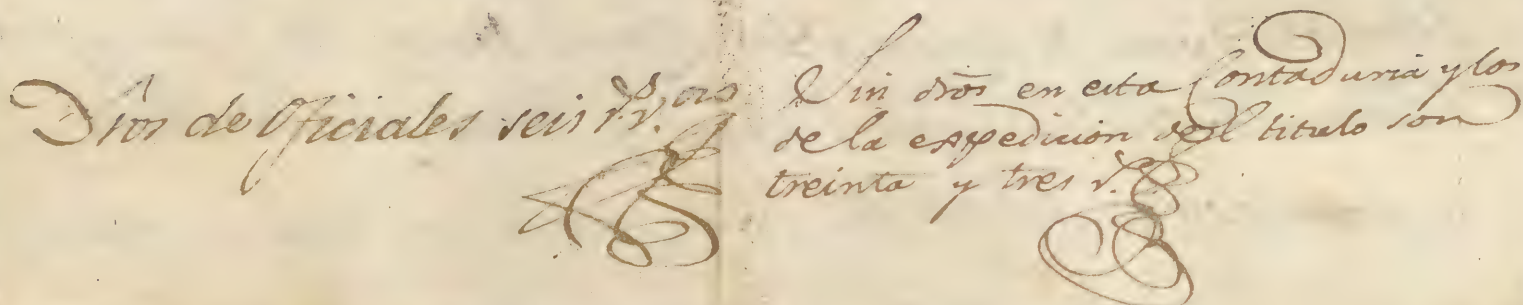 Dr̃os de Oficiales seis rr.
Sin dr̃os en esta Contaduria y los
de la expedicion del titulo son
treinta y tres r.